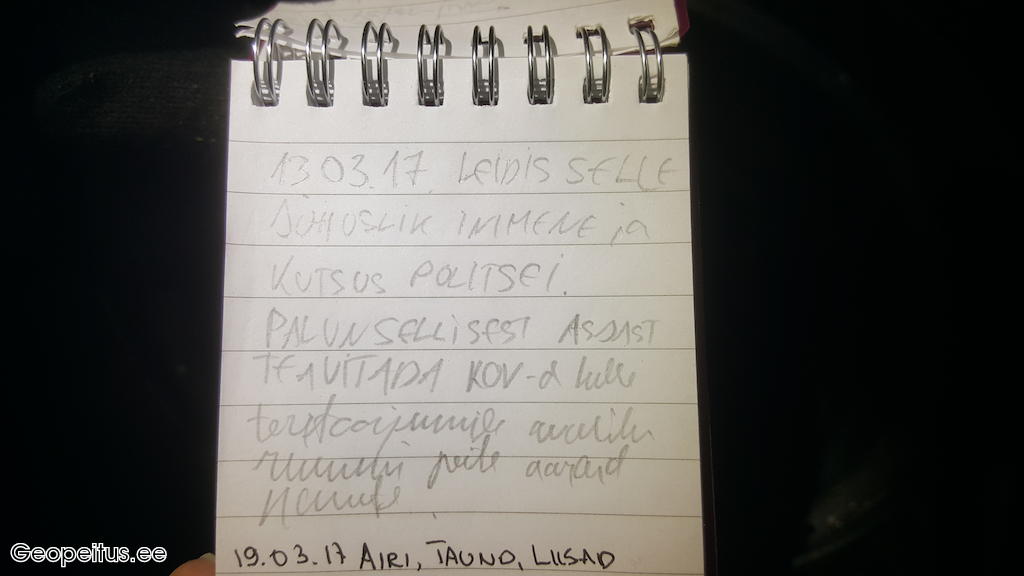 13.03.17. LEIDIS SELLE
JUHUSLIK INIMENE ja
KUTSUS POLITSEI.
PALUN SELLISEST ASJAST
TEAVITADA KOV-d kelle
avaliku
peite
19.03.17 AIRI, TAUNO, LIISAD
Geopeitus.ee